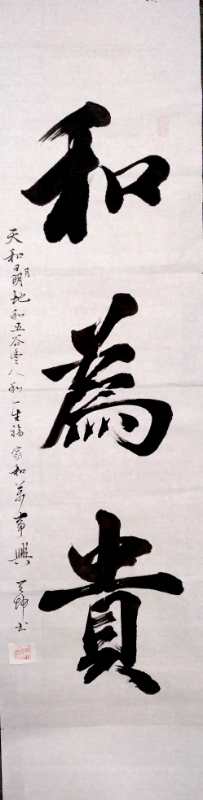 和為貴
天和日月明地和五谷豐人和一生福家和萬事興